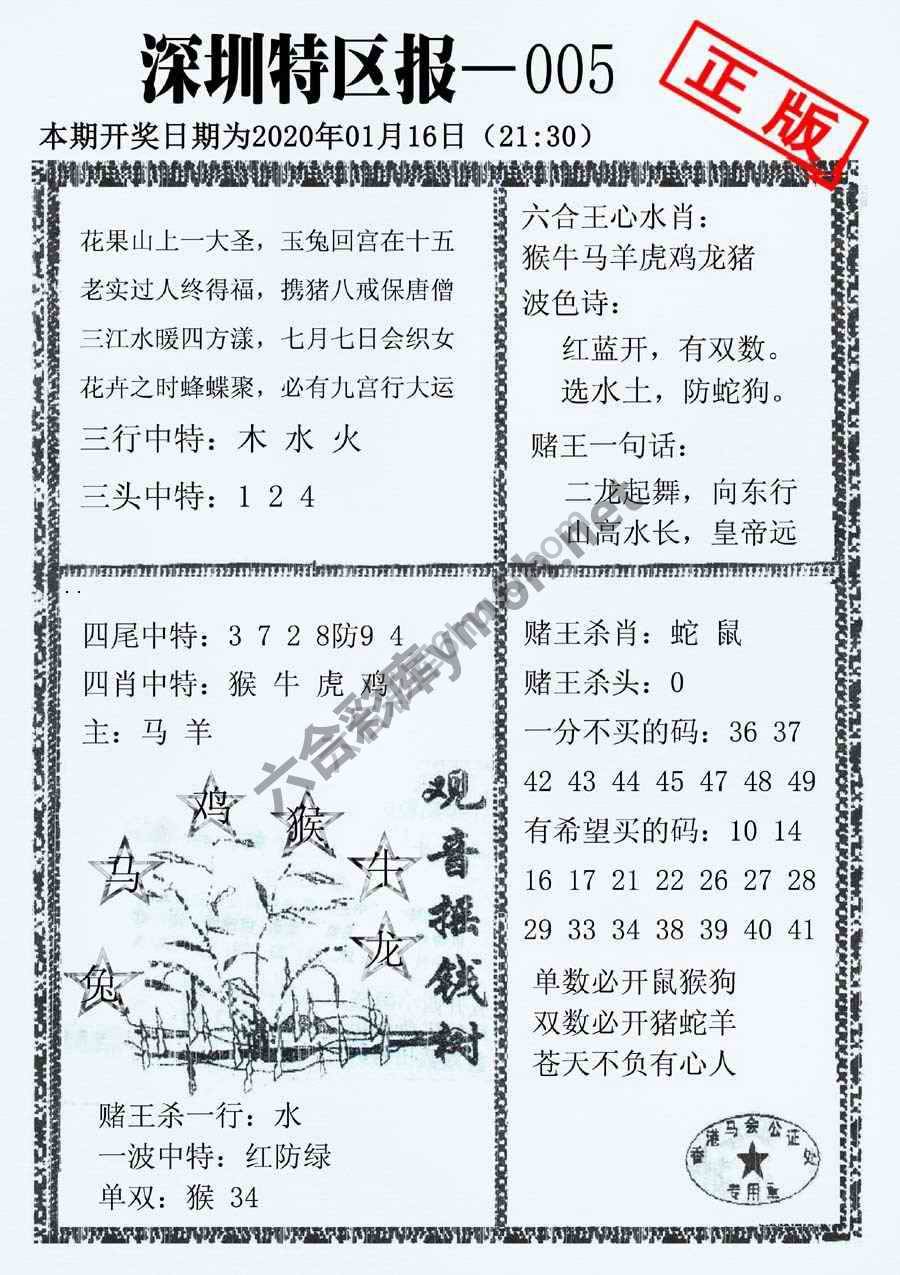 深圳特区报—005
正版
本期开奖日期为2020年01月16日（21:30）
花果山上一大圣，玉兔回宫在十五
老实过人终得福，携猪八戒保唐僧
三江水暖四方漾，七月七日会织女
花卉之时蜂蝶聚，必有九宫行大运
三行中特：木 水 火
三头中特：1 2 4
六合王心水肖：
猴牛马羊虎鸡龙猪
波色诗：
红蓝开，有双数。
选水土，防蛇狗。
赌王一句话：
二龙起舞，向东行
山高水长，皇帝远
四尾中特：3 7 2 8防9 4
四肖中特：猴 牛 虎 鸡
主：马 羊
鸡
猴
马
牛
龙
兔
观音摇钱树
赌王杀一行：水
一波中特：红防绿
单双：猴 34
赌王杀肖：蛇 鼠
赌王杀头：0
一分不买的码：36 37
42 43 44 45 47 48 49
有希望买的码：10 14
16 17 21 22 26 27 28
29 33 34 38 39 40 41
单数必开鼠猴狗
双数必开猪蛇羊
苍天不负有心人
香港马会公证处
专用章
六合彩库ymoh.net